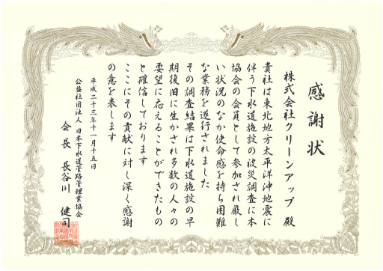 感謝状
株式会社クリーンアップ 殿
貴社は東北地方太平洋沖地震に
伴う下水道施設の被災調査に本
協会の会員として参加され厳し
い状況のなか使命感を持ち困難
な業務を遂行されました
その調査結果は下水道施設の早
期復旧に生かされ多数の人々の
要望に応えることができたもの
と確信しております
ここにその貢献に対し深く感謝
の意を表します
平成二十三年十一月十五日
公益社団法人 日本下水道管路管理業協会
会長 長谷川 健司